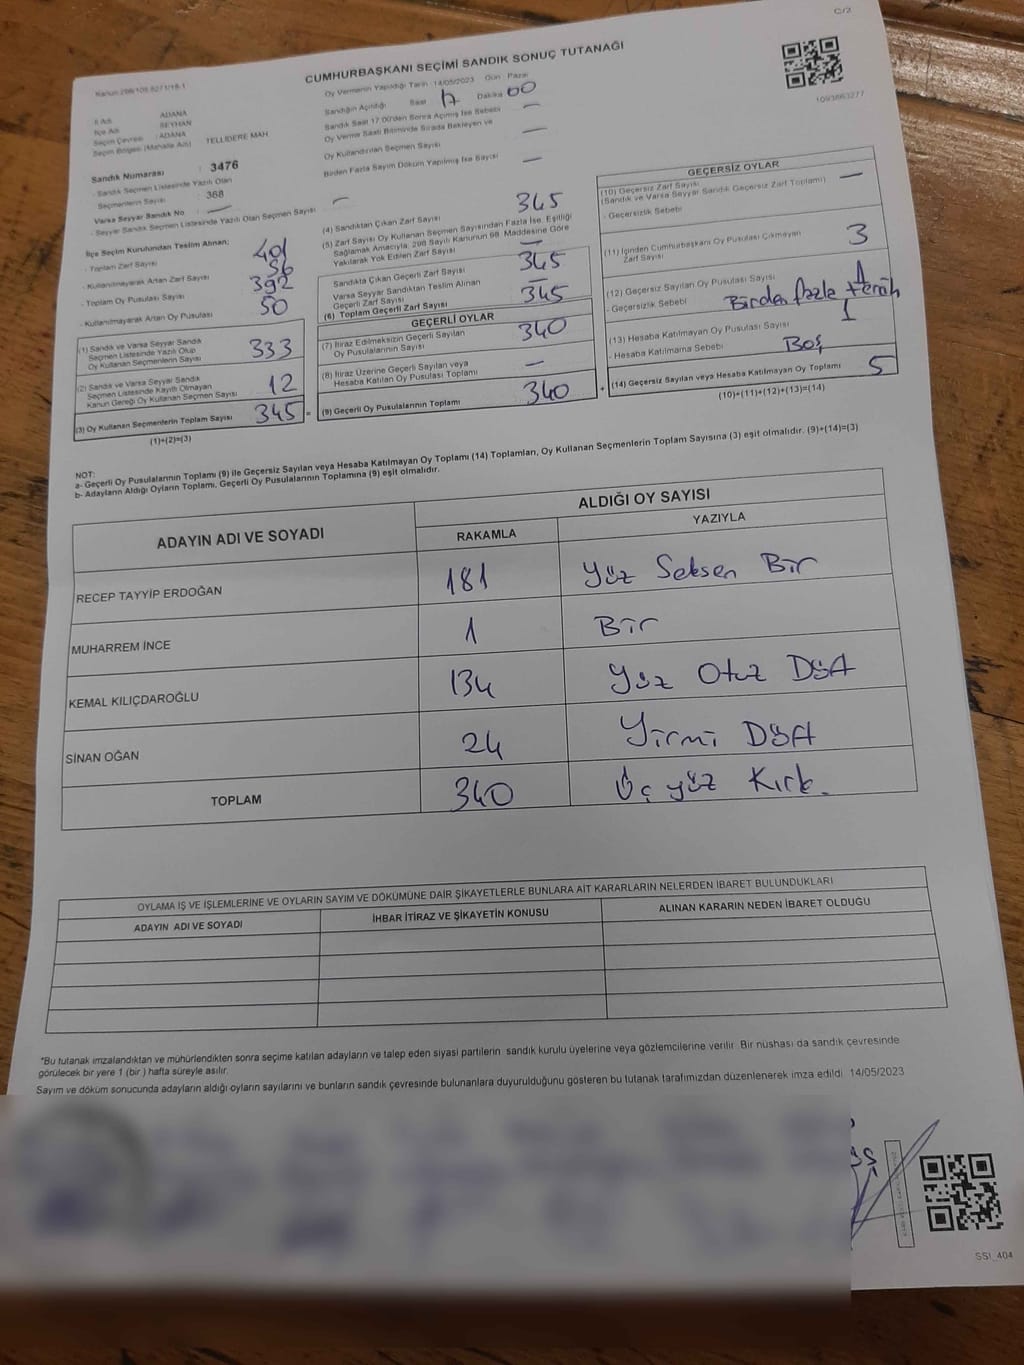 C/2
CUMHURBAŞKANI SEÇİMİ SANDIK SONUÇ TUTANAĞI
1093663277
Oy Vermenin Yapıldığı Tarih : 14/05/2023 Gün : Pazar
Sandığın Açıldığı Saat 17 Dakika 00
Sandık Saat 17.00'den Sonra Açılmış İse Sebebi —
Oy Verme Saati Bitiminde Sırada Bekleyen ve
Oy Kullandırılan Seçmen Sayısı —
Birden Fazla Sayım Döküm Yapılmış İse Sayısı —
İl Adı : ADANA
İlçe Adı : SEYHAN
Seçim Çevresi : ADANA
Seçim Bölgesi (Mahalle Adı) : TELLİDERE MAH
Sandık Numarası : 3476
- Sandık Seçmen Listesinde Yazılı Olan
Seçmenlerin Sayısı : 368
Varsa Seyyar Sandık No —
- Seyyar Sandık Seçmen Listesinde Yazılı Olan Seçmen Sayısı —
İlçe Seçim Kurulundan Teslim Alınan;
- Toplam Zarf Sayısı 401
- Kullanılmayarak Artan Zarf Sayısı 56
- Toplam Oy Pusulası Sayısı 392
- Kullanılmayarak Artan Oy Pusulası 50
(1) Sandık ve Varsa Seyyar Sandık
Seçmen Listesinde Yazılı Olup
Oy Kullanan Seçmenlerin Sayısı 333
(2) Sandık ve Varsa Seyyar Sandık
Seçmen Listesinde Kayıtlı Olmayan
Kanun Gereği Oy Kullanan Seçmen Sayısı 12
(3) Oy Kullanan Seçmenlerin Toplam Sayısı 345 =
(1)+(2)=(3)
(4) Sandıktan Çıkan Zarf Sayısı 345
(5) Zarf Sayısı Oy Kullanan Seçmen Sayısından Fazla İse, Eşitliği
Sağlamak Amacıyla, 298 Sayılı Kanunun 98. Maddesine Göre
Yakılarak Yok Edilen Zarf Sayısı —
Sandıkta Çıkan Geçerli Zarf Sayısı 345
Varsa Seyyar Sandıktan Teslim Alınan
Geçerli Zarf Sayısı —
(6) Toplam Geçerli Zarf Sayısı 345
GEÇERLİ OYLAR
(7) İtiraz Edilmeksizin Geçerli Sayılan
Oy Pusulalarının Sayısı 340
(8) İtiraz Üzerine Geçerli Sayılan veya
Hesaba Katılan Oy Pusulası Toplamı —
(9) Geçerli Oy Pusulalarının Toplamı 340 +
GEÇERSİZ OYLAR
(10) Geçersiz Zarf Sayısı
(Sandık ve Varsa Seyyar Sandık Geçersiz Zarf Toplamı) —
- Geçersizlik Sebebi
(11) İçinden Cumhurbaşkanı Oy Pusulası Çıkmayan
Zarf Sayısı 3
(12) Geçersiz Sayılan Oy Pusulası Sayısı 1
- Geçersizlik Sebebi Birden fazla tercih
(13) Hesaba Katılmayan Oy Pusulası Sayısı 1
- Hesaba Katılmama Sebebi Boş
(14) Geçersiz Sayılan veya Hesaba Katılmayan Oy Toplamı 5
(10)+(11)+(12)+(13)=(14)
NOT:
a- Geçerli Oy Pusulalarının Toplamı (9) ile Geçersiz Sayılan veya Hesaba Katılmayan Oy Toplamı (14) Toplamları, Oy Kullanan Seçmenlerin Toplam Sayısına (3) eşit olmalıdır. (9)+(14)=(3)
b- Adayların Aldığı Oyların Toplamı, Geçerli Oy Pusulalarının Toplamına (9) eşit olmalıdır.
ADAYIN ADI VE SOYADI
ALDIĞI OY SAYISI
RAKAMLA YAZIYLA
RECEP TAYYİP ERDOĞAN 181 Yüz Seksen Bir
MUHARREM İNCE 1 Bir
KEMAL KILIÇDAROĞLU 134 Yüz Otuz Dört
SİNAN OĞAN 24 Yirmi Dört
TOPLAM 340 Üç yüz Kırk.
OYLAMA İŞ VE İŞLEMLERİNE VE OYLARIN SAYIM VE DÖKÜMÜNE DAİR ŞİKAYETLERLE BUNLARA AİT KARARLARIN NELERDEN İBARET BULUNDUKLARI
ADAYIN ADI VE SOYADI İHBAR İTİRAZ VE ŞİKAYETİN KONUSU ALINAN KARARIN NEDEN İBARET OLDUĞU
*Bu tutanak imzalandıktan ve mühürlendikten sonra seçime katılan adayların ve talep eden siyasi partilerin sandık kurulu üyelerine veya gözlemcilerine verilir. Bir nüshası da sandık çevresinde
görülecek bir yere 1 (bir) hafta süreyle asılır.
Sayım ve döküm sonucunda adayların aldığı oyların sayılarını ve bunların sandık çevresinde bulunanlara duyurulduğunu gösteren bu tutanak tarafımızdan düzenlenerek imza edildi. 14/05/2023
SSI_404